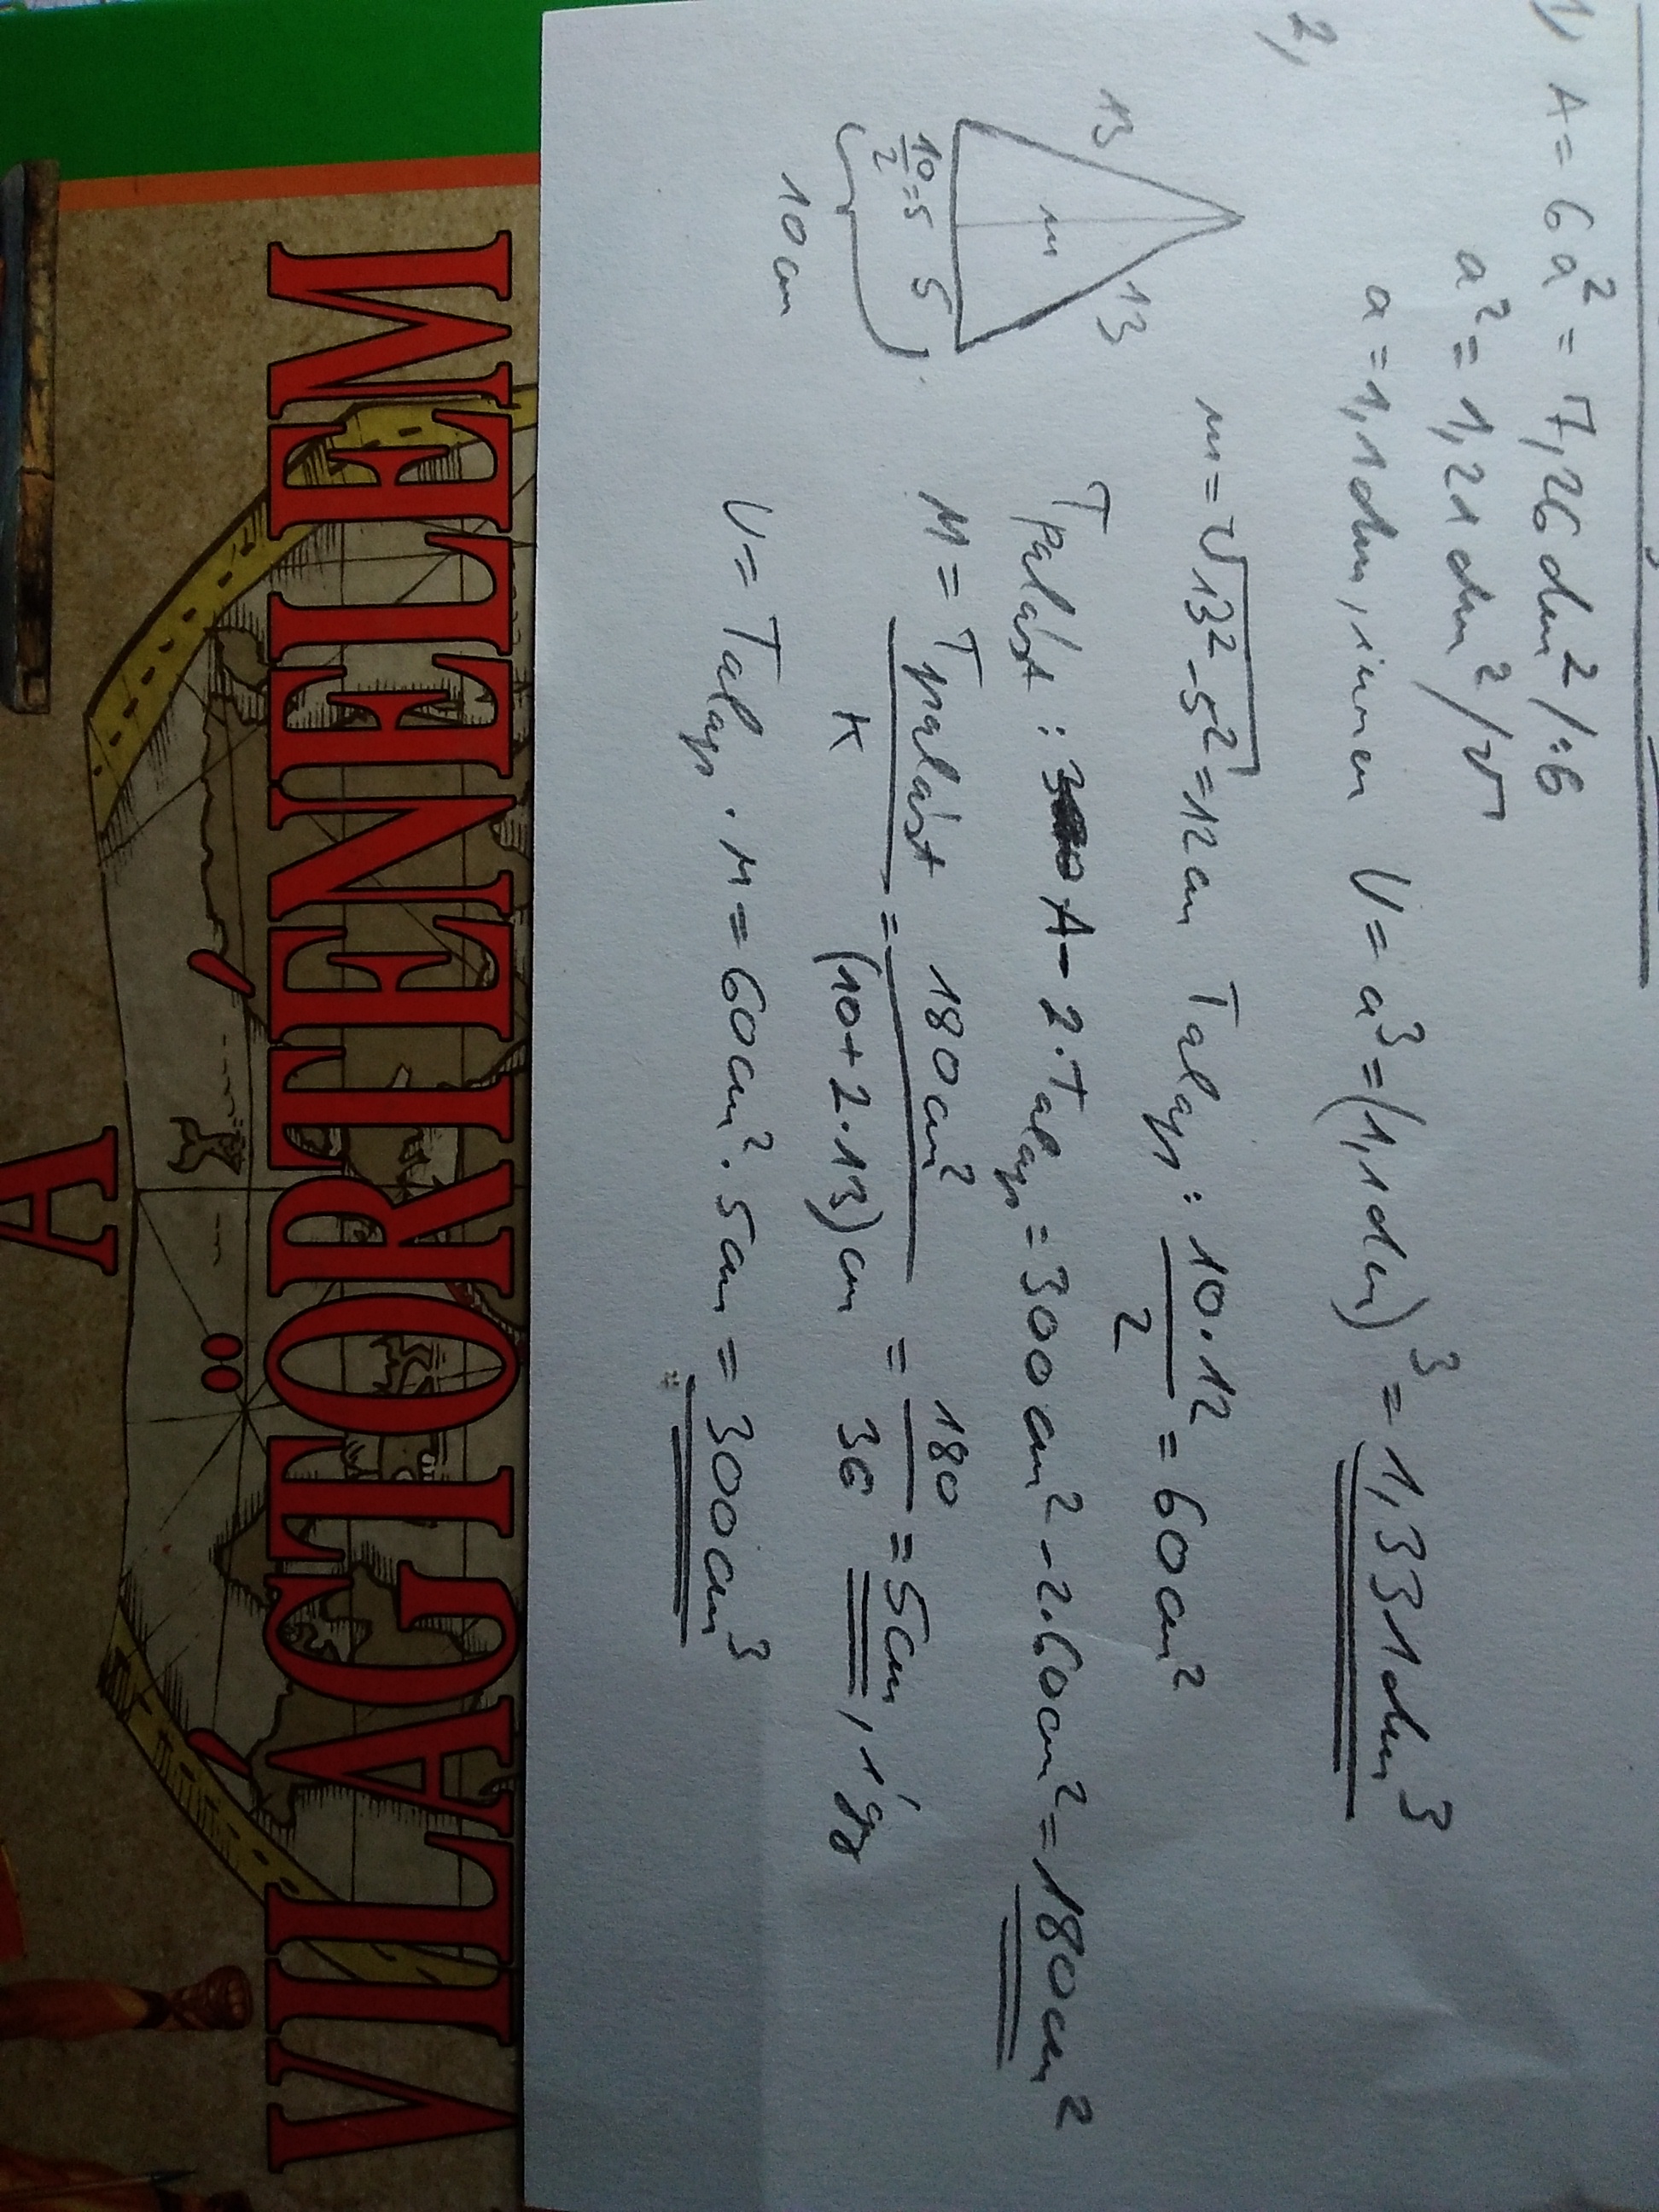 1) A = 6a² = 7,26 dm² /:6
a² = 1,21 dm² /√
a = 1,1 dm, innen V = a³ = (1,1 dm)³ = 1,331 dm³
2,
13 13
m
10/2 = 5 5
10 cm
m = √13² - 5² = 12 cm Talap: 10·12/2 = 60 cm²
Tpalást: A - 2·Talap = 300 cm² - 2·60 cm² = 180 cm²
M = Tpalást/K = 180 cm²/(10+2·13) cm = 180/36 = 5 cm, így
V = Talap · M = 60 cm² · 5 cm = 300 cm³
VILÁGTÖRTÉNELEM
A